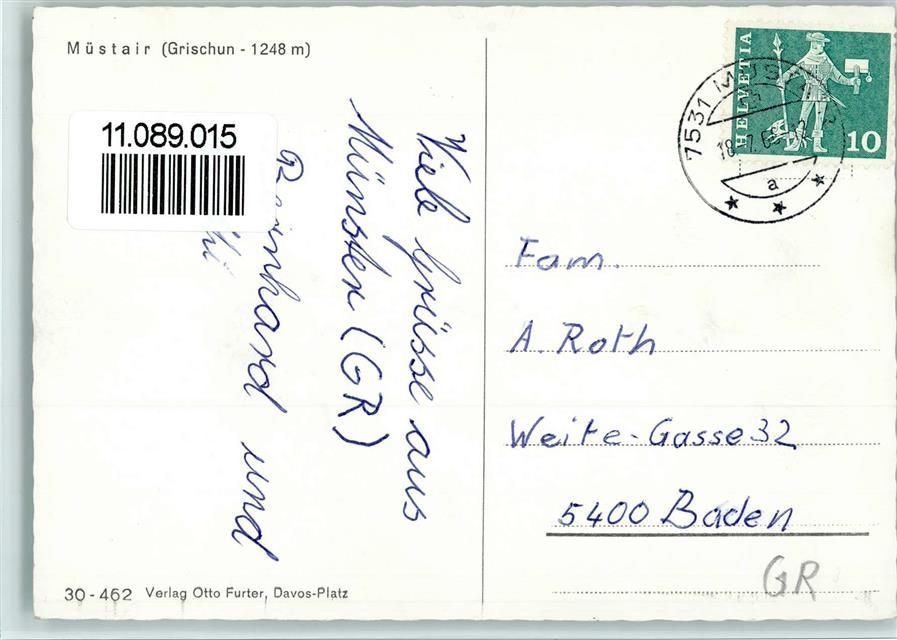 Müstair (Grischun - 1248 m)
11.089.015
Viele Grüsse aus
Münster (GR)
Reinhard und
HELVETIA
10
7531 MÜSTAIR
a
Fam.
A. Roth
Weite-Gasse 32
5400 Baden
GR
30-462 Verlag Otto Furter, Davos-Platz